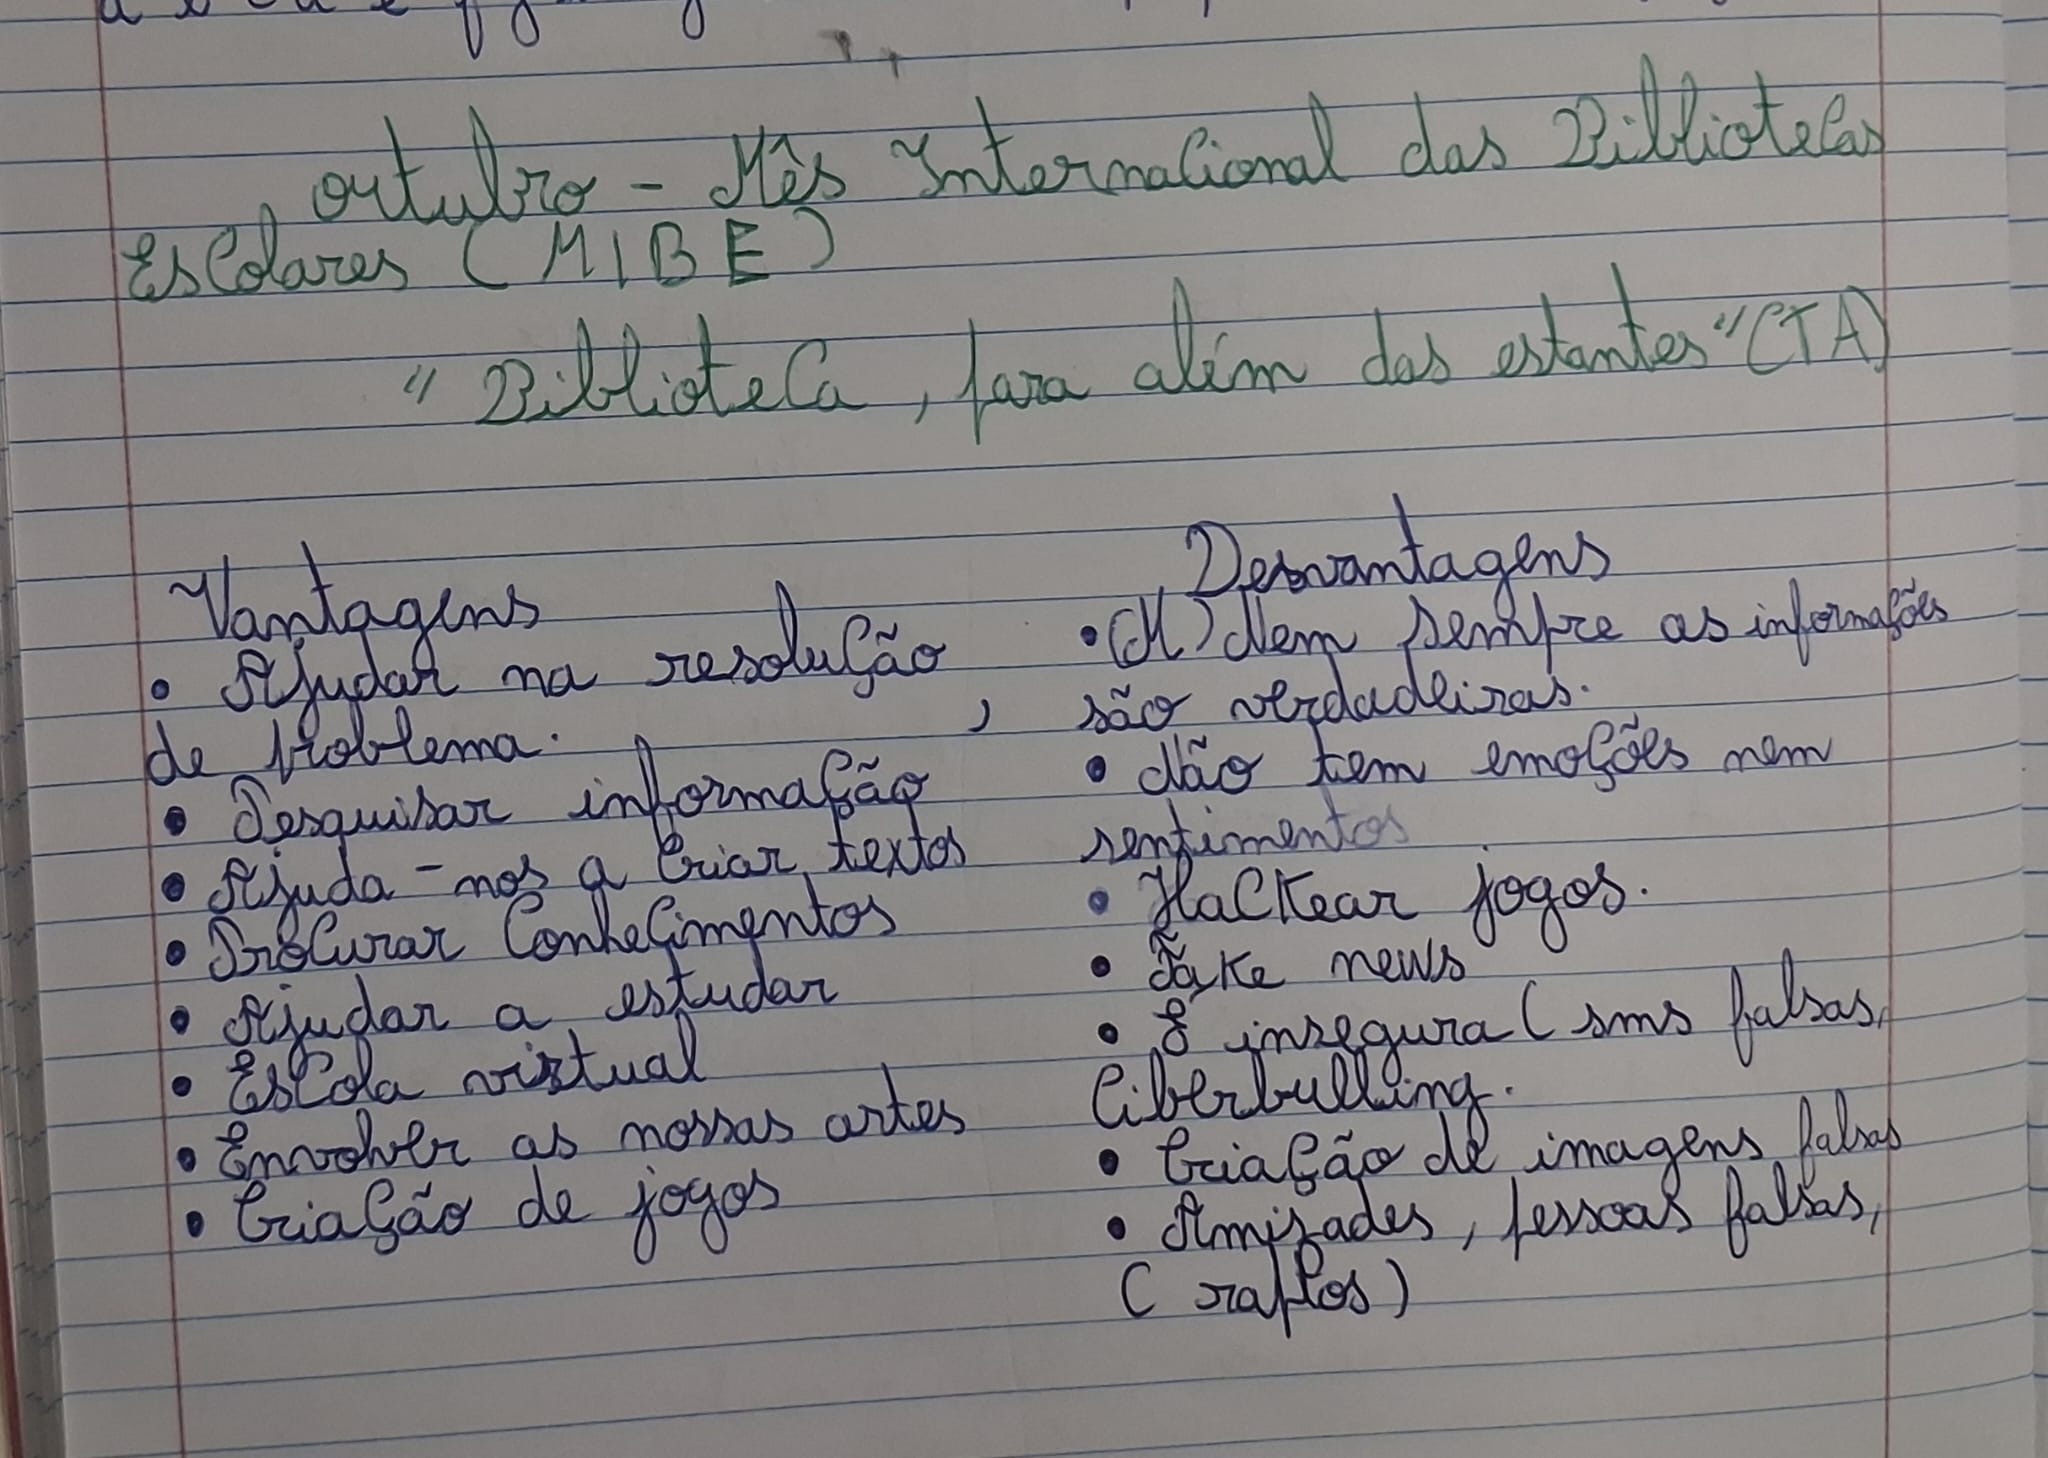 outubro - Mês Internacional das Bibliotecas
Escolares (MIBE)
"Biblioteca, para além das estantes" (IA)
Vantagens
• Ajudar na resolução
de problema.
• Pesquisar informação
• Ajuda-nos a criar textos
• Procurar conhecimentos
• Ajudar a estudar
• Escola virtual
• Envolver as nossas artes
• Criação de jogos
Desvantagens
• (N) Nem sempre as informações
são verdadeiras.
• Não tem emoções nem
sentimentos
• Hackear jogos.
• Fake news
• É insegura (sms falsas,
Ciberbulling.
• Criação de imagens falsas
• Amizades, pessoas falsas,
(raptos)